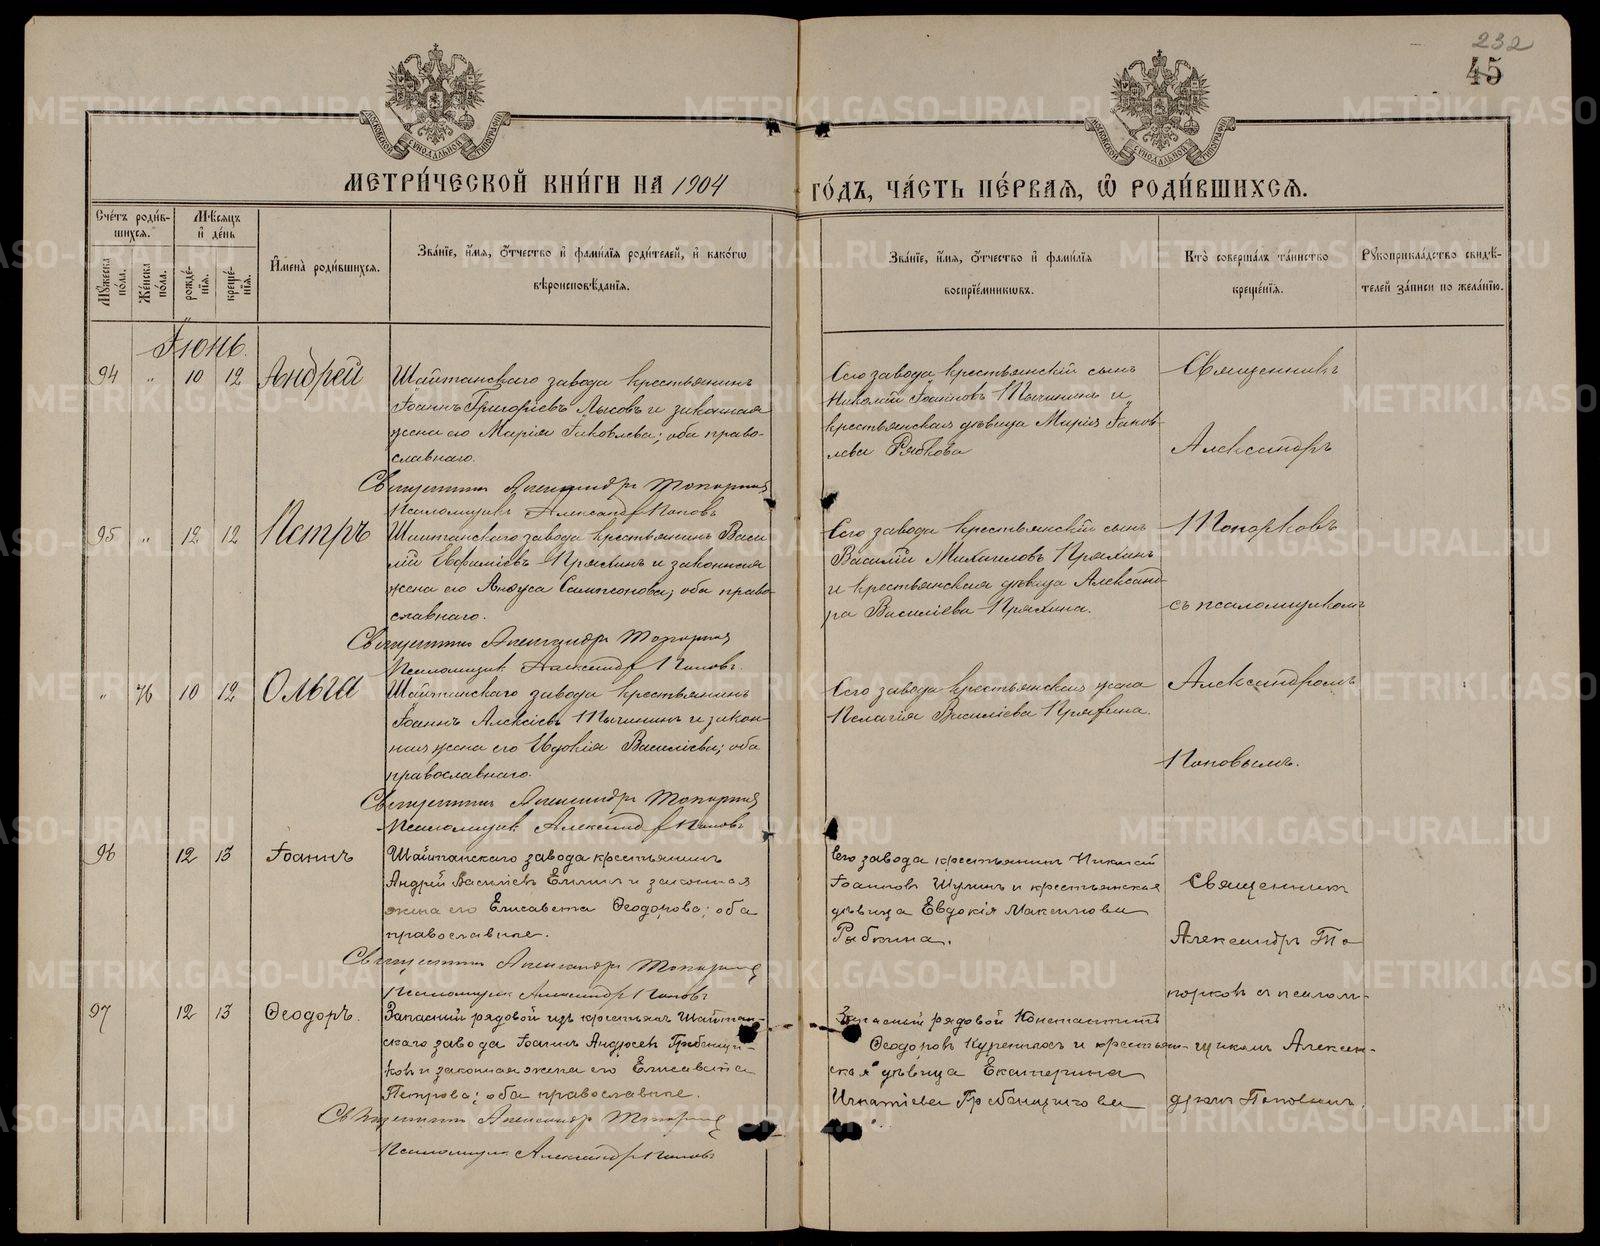 232
45
МОСКОВСКОЙ СѴНОДАЛЬНОЙ ТИПОГРАФІИ
МОСКОВСКОЙ СѴНОДАЛЬНОЙ ТИПОГРАФІИ
МЕТРИ́ЧЕСКОЙ КНИ́ГИ НА 1904 ГО́ДЪ, ЧА́СТЬ ПЕ́РВАЯ, Ѡ РОДИ́ВШИХСЯ.
Сче́тъ роди́вшихся.
Мѹ́жеска по́ла.
Же́нска по́ла.
Мѣ́сяцъ и де́нь
рожде́нїя.
креще́нїя.
И҆мена̀ роди́вшихся.
Зва́нїе, и҆́мя, ѻ҆́тчество и҆ фами́лїя роди́телей, и҆ како́гѡ вѣроисповѣ́данїя.
Зва́нїе, и҆́мя, ѻ҆́тчество и҆ фами́лїя воспрїе́мникѡвъ.
Кто̀ соверша́лъ та́инство креще́нїя.
Рѹкоприкла́дство свидѣ́телей за́писи по жела́нїю.
Іюнь.
94 " 10 12 Андрей
Шайтанскаго завода крестьянинъ
Іоаннъ Григоріевъ Лысовъ и законная
жена его Марія Іаковлева; оба право-
славнаго.
Священникъ Александръ Топорковъ
Псаломщикъ Александръ Поповъ
Сего завода крестьянскій сынъ
Николай Іоанновъ Тычининъ и
крестьянская дѣвица Марія Іаков-
лева Рябкова
Священникъ
Александръ
95 " 12 12 Петръ
Шайтанскаго завода крестьянинъ Васи
лій Евфиміевъ Пряхинъ и законная
жена его Анфуса Сампсонова; оба право-
славнаго.
Священникъ Александръ Топорковъ
Псаломщикъ Александръ Поповъ.
Сего завода крестьянскій сынъ
Василій Михаиловъ Пряхинъ
и крестьянская дѣвица Александ-
ра Василіева Пряхина.
Топорковъ
съ псаломщикомъ
" 76 10 12 Ольга
Шайтанскаго завода крестьянинъ
Іоаннъ Алексіевъ Тычининъ и закон-
ная жена его Евдокія Василіева; оба
православнаго.
Священникъ Александръ Топорковъ
Псаломщикъ Александръ Поповъ
Сего завода крестьянская жена
Пелагія Василіева Пряхина.
Александромъ
Поповымъ.
96 12 13 Іоаннъ
Шайтанскаго завода крестьянинъ
Андрей Василіевъ и законная
жена его Елисавета Ѳеодорова; оба
православные.
Священникъ Александръ Топорковъ
Псаломщикъ Александръ Поповъ
Сего завода крестьянинъ Николай
Іоанновъ Шулинъ и крестьянская
дѣвица Евдокія Максимова
Рябкина.
Священникъ
Александръ То
порковъ съ псалом-
97 12 13 Ѳеодоръ.
Запасный рядовой изъ крестьянъ Шайтан-
скаго завода Іоаннъ Андреевъ Гребенщи-
ковъ и законная жена его Елисавета
Петрова; оба православные.
Священникъ Александръ Топорковъ
Псаломщикъ Александръ Поповъ
Запасный рядовой Константинъ
Ѳеодоровъ и крестьян-
ская дѣвица Екатерина
Игнатіева Гребенщикова
щикомъ Алексан-
дромъ Поповымъ.
METRIKI.GASO-URAL.RU